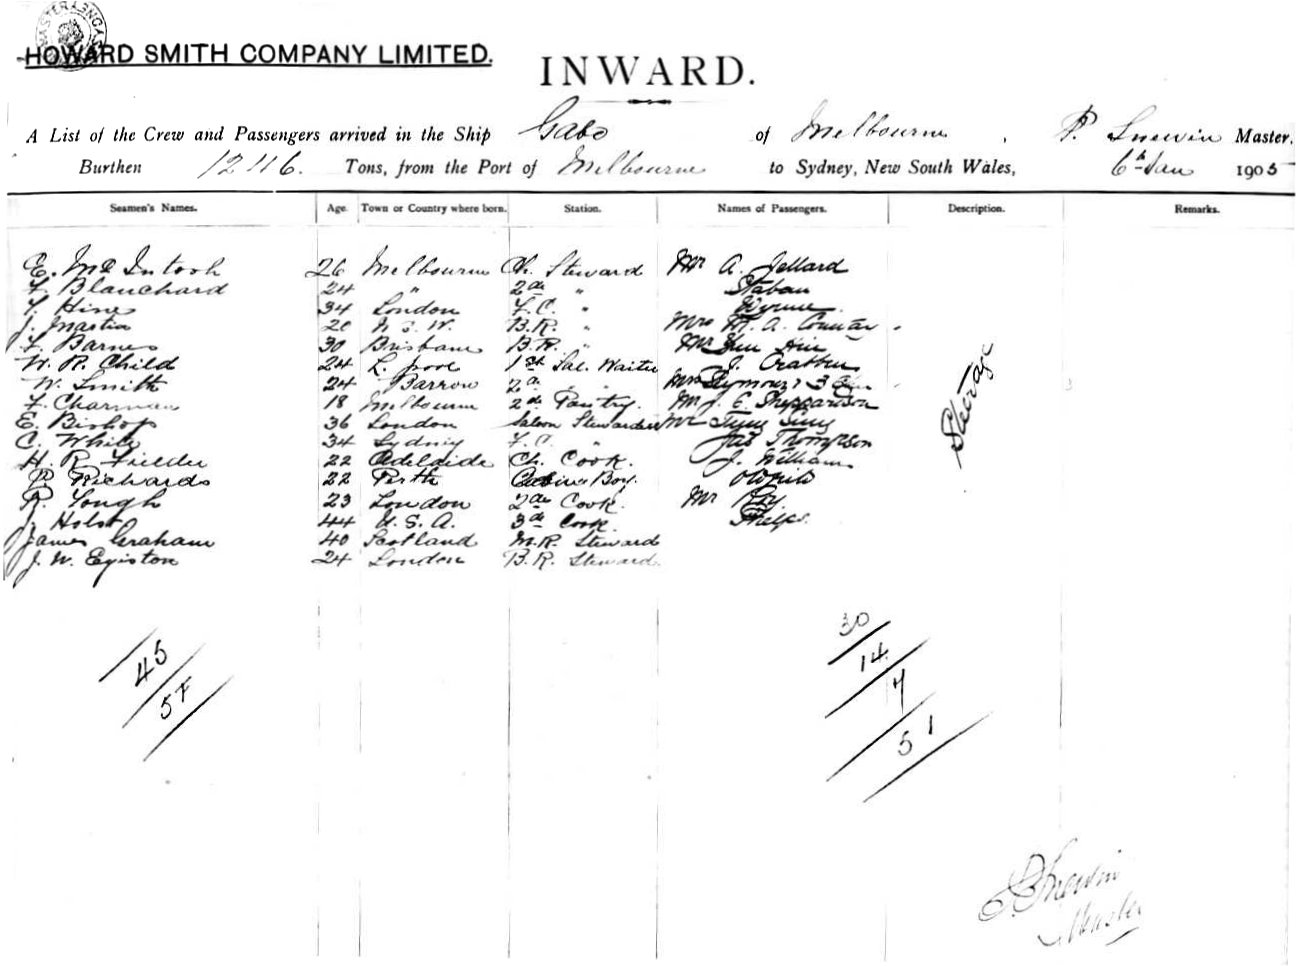 HOWARD SMITH COMPANY LIMITED.
INWARD.
A List of the Crew and Passengers arrived in the Ship Gabo of Melbourne, Master.
Burthen Tons, from the Port of Melbourne to Sydney, New South Wales, 6th Jan 1905
Seamen's Names. Age. Town or Country where born. Station. Names of Passengers. Description. Remarks.
E. McIntosh 26 Melbourne Ch. Steward Mr A. Jellard
F. Blanchard 24 " 2nd "
F. Hines 34 London F.C. "
J. Martin 20 N.S.W. B.R. " Mrs M. A.
F. Barnes 30 Brisbane B.R. " Mr
W. R. Child 24 L. pool 1st Sal. Waiter J.
W. Smith 24 Barrow 2d " " Mrs Seymour & 3
F. Charman 18 Melbourne 2nd Pantry. Mr J. E. Shepparson
E. Bishop 36 London Saloon Stewardess Mr
C. White 34 Sydney F.C. " Jas Thompson
H. R. Fielder 22 Adelaide Ch. Cook. J. Williams
P. Richards 22 Perth Cabin Boy.
R. Tough 23 London 2nd Cook. Mr Roy
J. Holst 44 U.S.A. 3rd Cook. Phelps.
James Graham 40 Scotland M.R. Steward
J. W. Egiston 24 London B.R. Steward
Steerage
45
57
30
14
7
51
Master